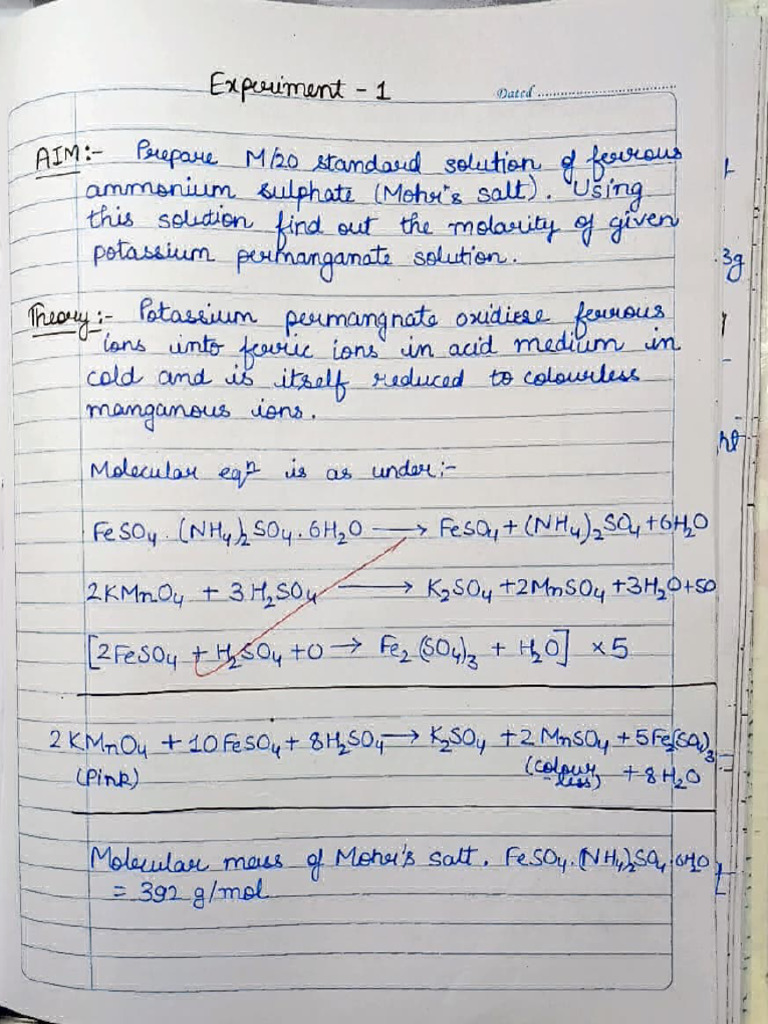 Experiment - 1
Dated
AIM:- Prepare M/20 standard solution of ferrous
ammonium sulphate (Mohr's salt). Using
this solution find out the molarity of given
potassium permanganate solution.
3g
Theory:- Potassium permangnate oxidiese ferrous
ions into ferric ions in acid medium in
cold and is itself reduced to colourless
manganous ions.
Molecular eqⁿ is as under:-
FeSO₄·(NH₄)₂SO₄·6H₂O ⟶ FeSO₄ + (NH₄)₂SO₄ + 6H₂O
2KMnO₄ + 3H₂SO₄ ⟶ K₂SO₄ + 2MnSO₄ + 3H₂O + 5O
[2FeSO₄ + H₂SO₄ + O → Fe₂(SO₄)₃ + H₂O] × 5
2KMnO₄ + 10FeSO₄ + 8H₂SO₄ ⟶ K₂SO₄ + 2MnSO₄ + 5Fe₂(SO₄)₃
(Pink) (colour-less) + 8H₂O
Molecular mass of Mohr's salt, FeSO₄·(NH₄)₂SO₄·6H₂O
= 392 g/mol